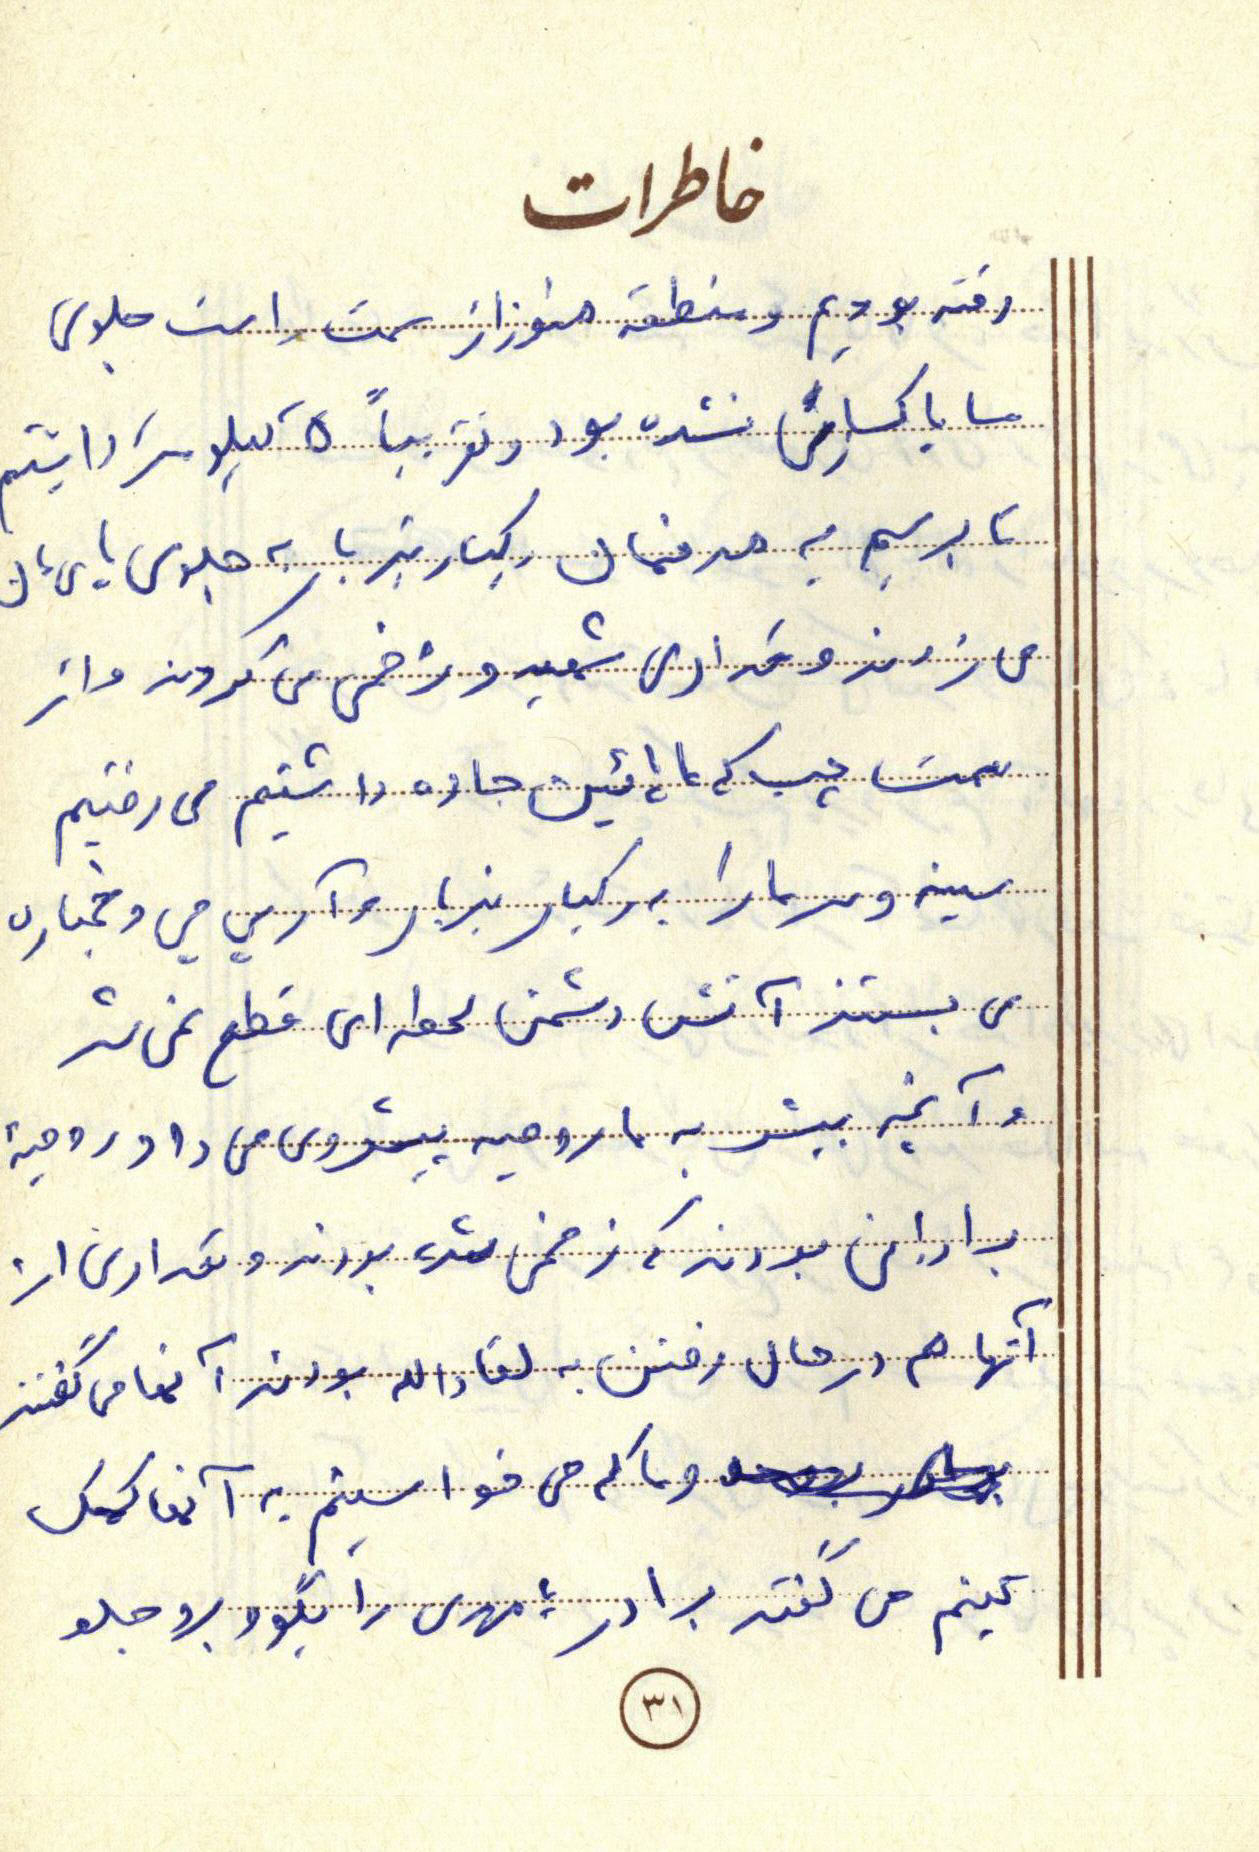 خاطرات
رفته بودیم و منطقه هنوز از سمت راست جلوی
ما پاکسازی نشده بود و تقریباً ۵ کیلومتر داشتیم
تا برسیم به هدفمان رگبار تیربار به جلوی پای مان
می زدند و مقداری شهید و زخمی می کردند و از
سمت چپ که ما پائین جاده داشتیم می رفتیم
سینه و سر ما را به رگبار تیربار و آرپی جی و خمپاره
می بستند آتش دشمن لحظه ای قطع نمی شد
و آنچه بیشتر به ما روحیه پیشروی می داد روحیۀ
برادرانی بودند که زخمی شده بودند و مقداری از
آنها هم در حال رفتن به لقاءالله بودند آنها می گفتند
و ما که می خواستیم به آنها کمک
کنیم می گفتند برادر مهدی را بگو و برو جلو
۳۱